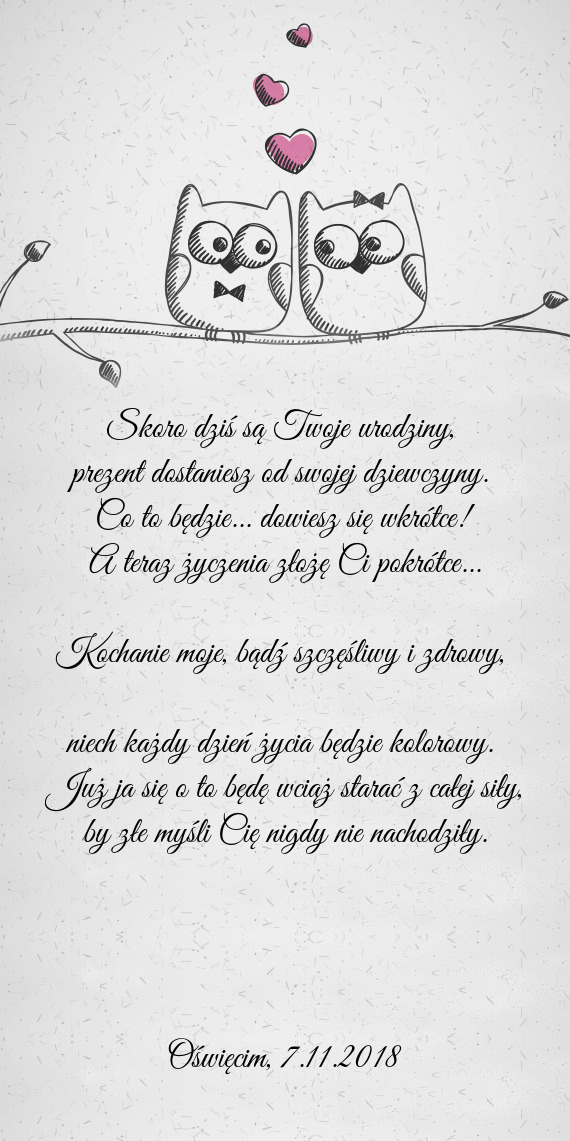 Skoro dziś są Twoje urodziny,
prezent dostaniesz od swojej dziewczyny.
Co to będzie... dowiesz się wkrótce!
A teraz życzenia złożę Ci pokrótce...
Kochanie moje, bądź szczęśliwy i zdrowy,
niech każdy dzień życia będzie kolorowy.
Już ja się o to będę wciąż starać z całej siły,
by złe myśli Cię nigdy nie nachodziły.
Oświęcim, 7.11.2018